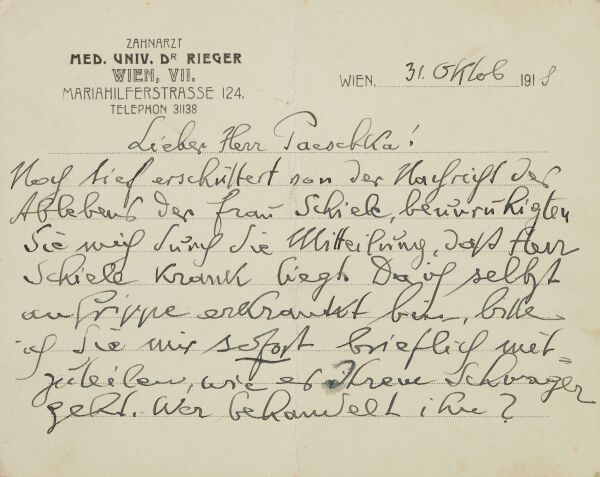 ZAHNARZT
MED. UNIV. DR RIEGER
WIEN, VII.
MARIAHILFERSTRASSE 124.
TELEPHON 31138
WIEN, 31. Oktob 1918
Lieber Herr Paeschka!
Noch tief erschüttert von der Nachricht des
Ablebens der Frau Schiele, beunruhigten
Sie mich durch die Mitteilung, daß Herr
Schiele krank liegt. Da ich selbst
an Grippe erkrankt bin, bitte
ich Sie mir sofort brieflich mit=
zuteilen, wie es Ihrem Schwager
geht. Wer behandelt ihn?